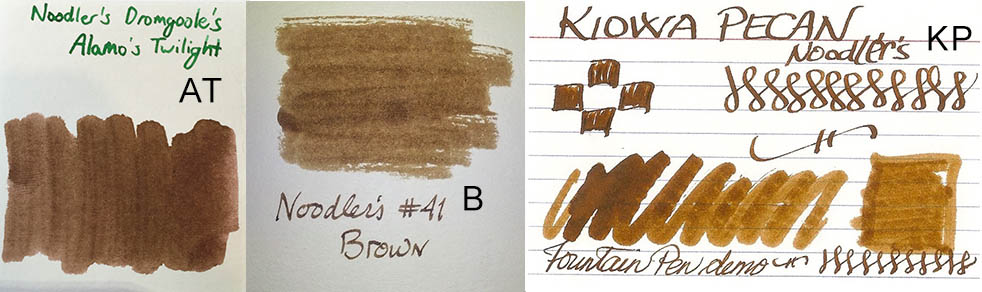 Noodler's Dromgoole's
Alamo's Twilight
AT
Noodler's #41
Brown
B
KIOWA PECAN
Noodler's
KP
Fountain Pen demo